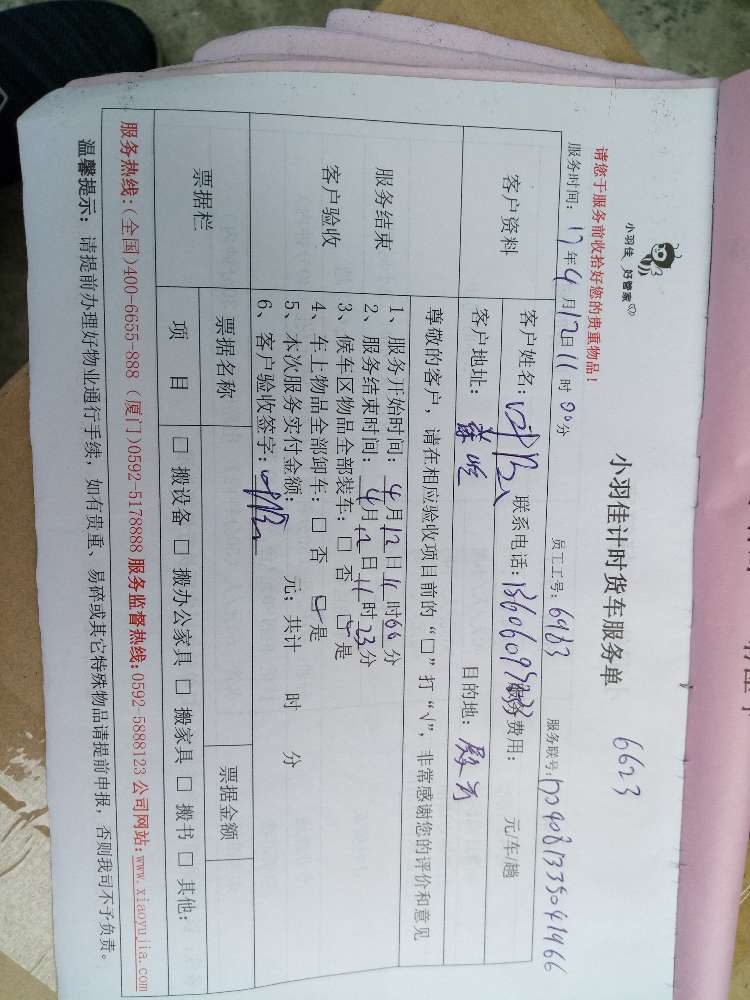 小羽佳 好管家
小羽佳计时货车服务单
6623
请您于服务前收拾好您的贵重物品！
服务时间：17年4月12日11时00分 员工工号：6983 服务联号：
客户资料
客户姓名： 联系电话： 服务费用： 元/车/趟
客户地址： 目的地：
尊敬的客户，请在相应验收项目前的“□”打“√”，非常感谢您的评价和意见
服务结束
客户验收
1、服务开始时间：4月12日11时00分
2、服务结束时间：4月12日11时23分
3、候车区物品全部装车：□ 否 ☑ 是
4、车上物品全部卸车：□ 否 ☑ 是
5、本次服务实付金额： 元；共计 时 分
6、客户验收签字：
票据栏
票据名称 票据金额
项 目 □ 搬设备 □ 搬办公家具 □ 搬家具 □ 搬书 □ 其他：
服务热线：(全国)400-6655-888 (厦门)0592-5178888 服务监督热线：0592-5888123 公司网站：www.xiaoyujia.com
温馨提示：请提前办理好物业通行手续，如有贵重、易碎或其它特殊物品请提前申报，否则我司不予负责。